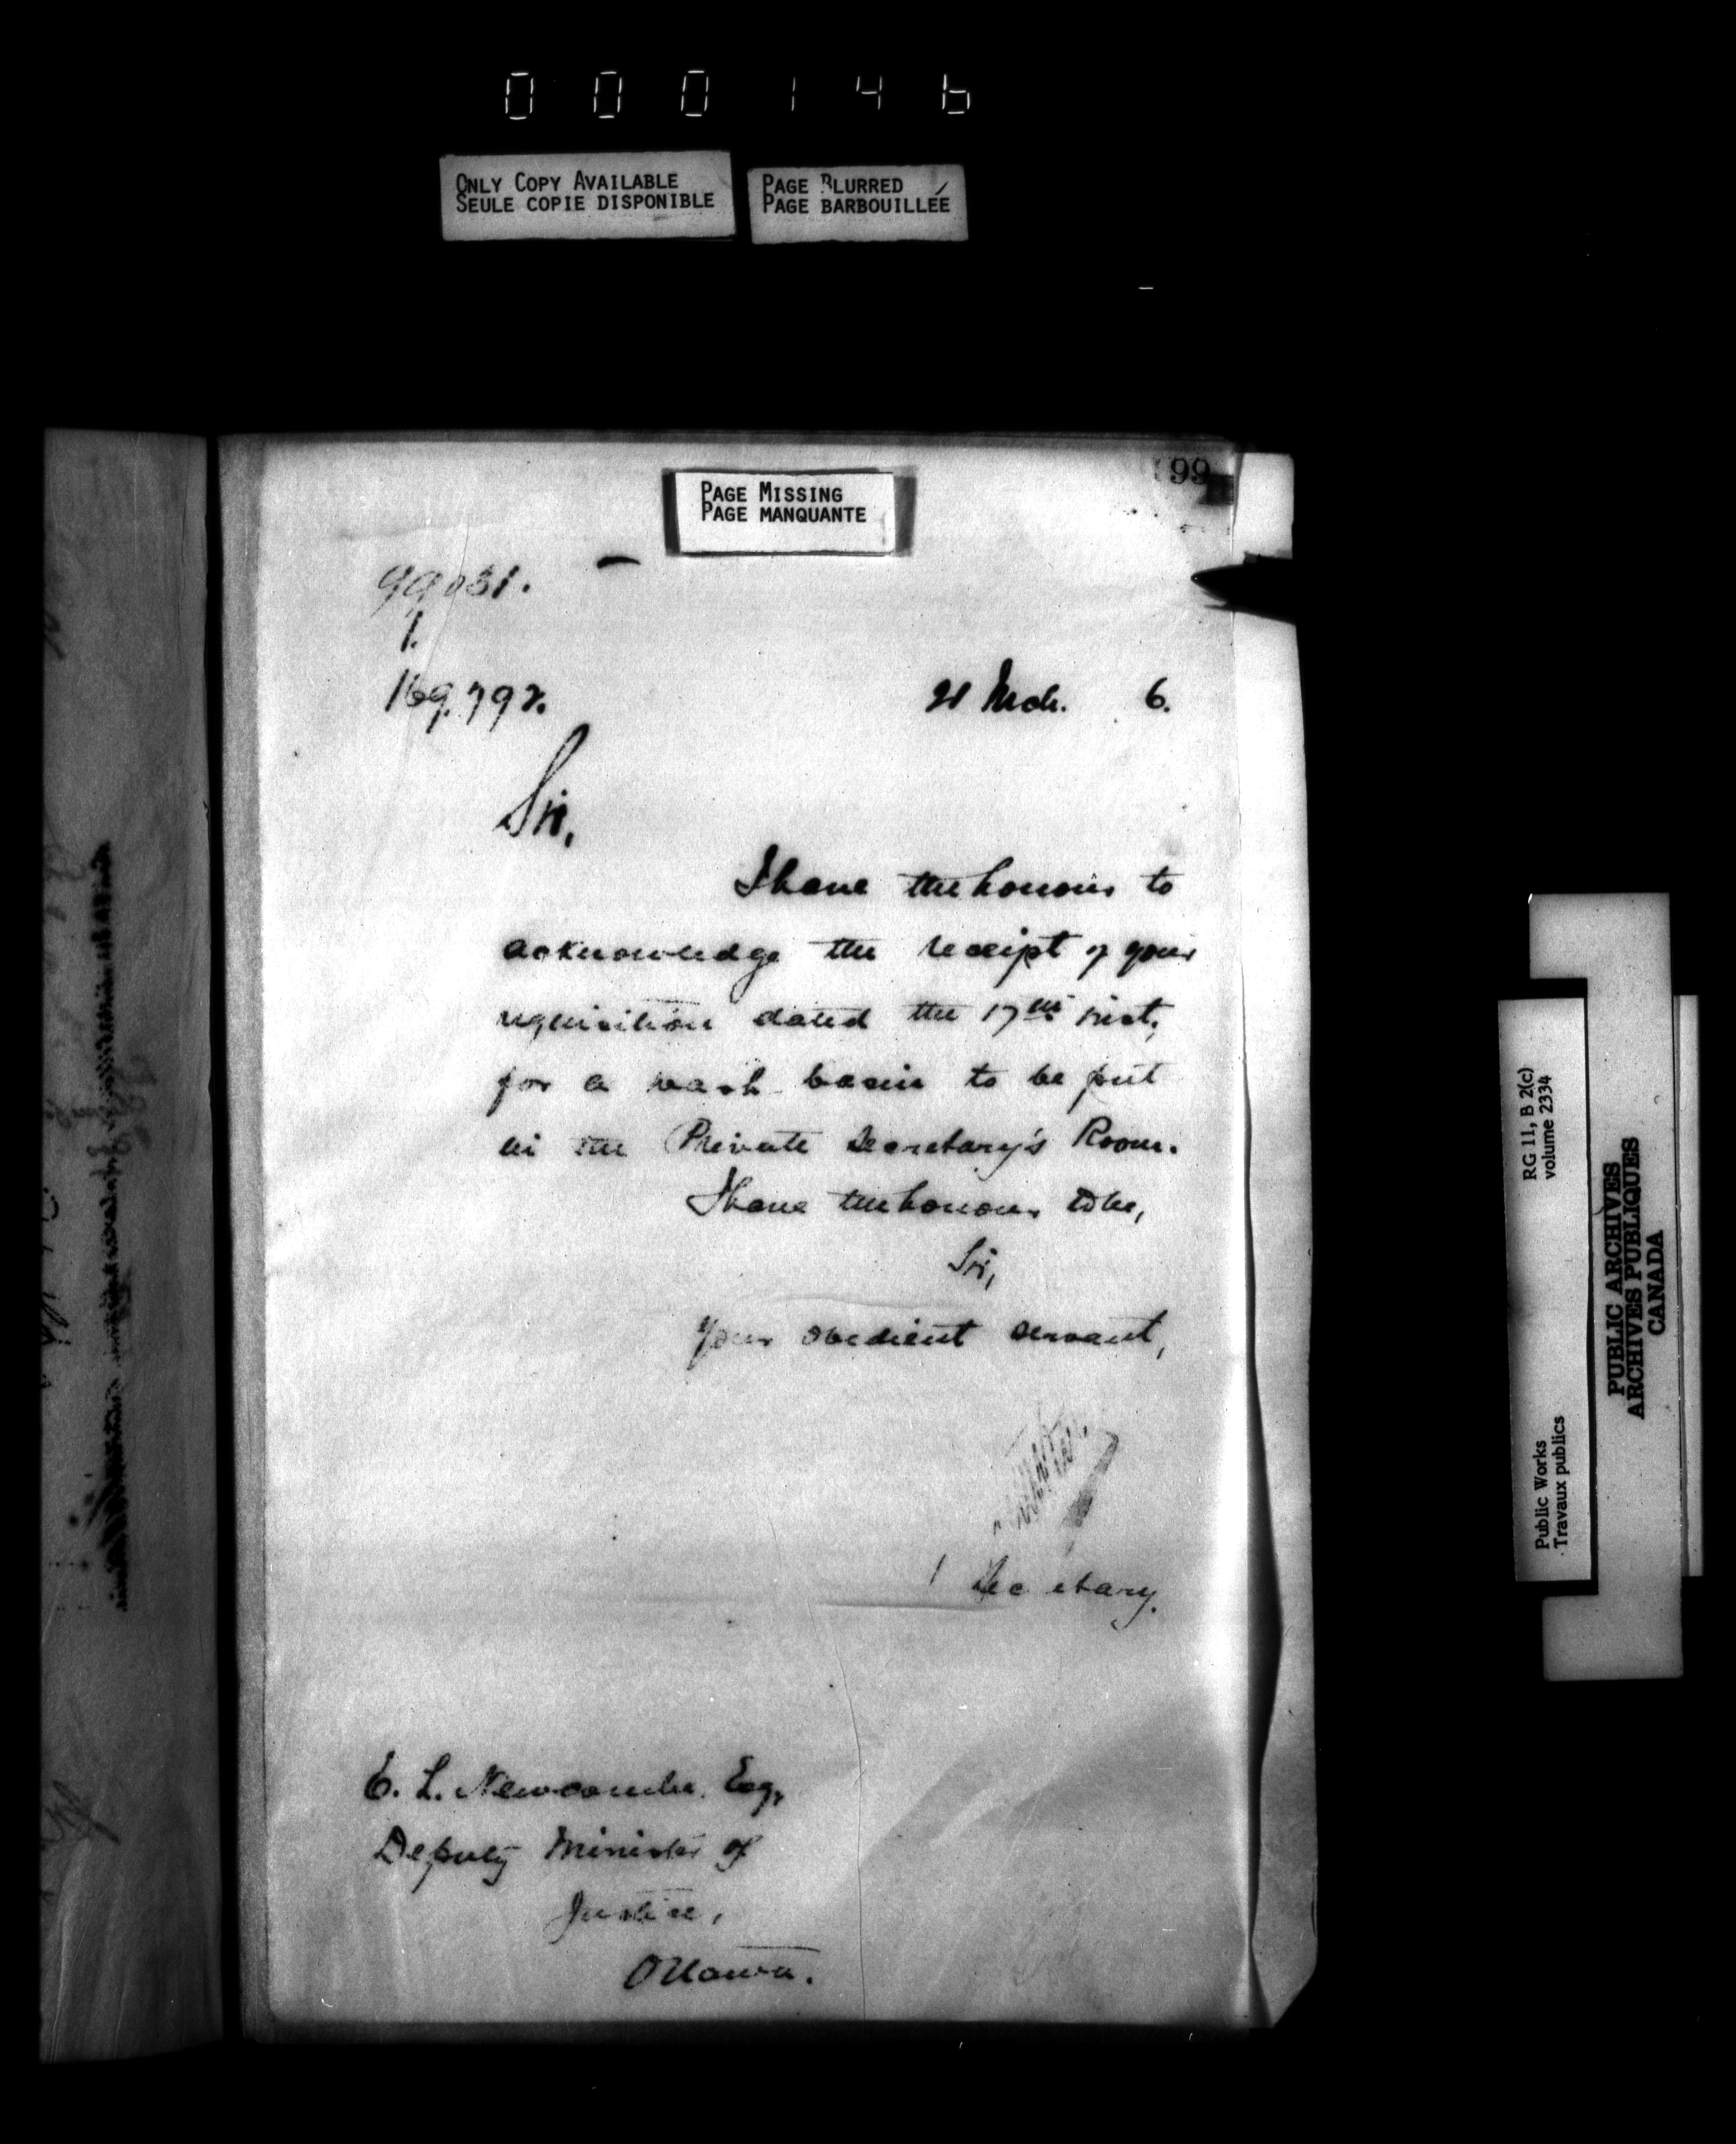 000146
ONLY COPY AVAILABLE
SEULE COPIE DISPONIBLE
PAGE BLURRED
PAGE BARBOUILLÉE
99
PAGE MISSING
PAGE MANQUANTE
99031.
1.
169,792.
21 Mch. 6.
Sir,
I have the honour to
acknowledge the receipt of your
requisition dated the 17th inst,
for a wash basin to be put
in the Private Secretary's Room.
I have the honour to be,
Sir,
Your obedient servant,
Secretary.
E. L. Newcombe, Esq,
Deputy Minister of
Justice,
Ottawa.
RG 11, B 2(c)
volume 2334
Public Works
Travaux publics
PUBLIC ARCHIVES
ARCHIVES PUBLIQUES
CANADA